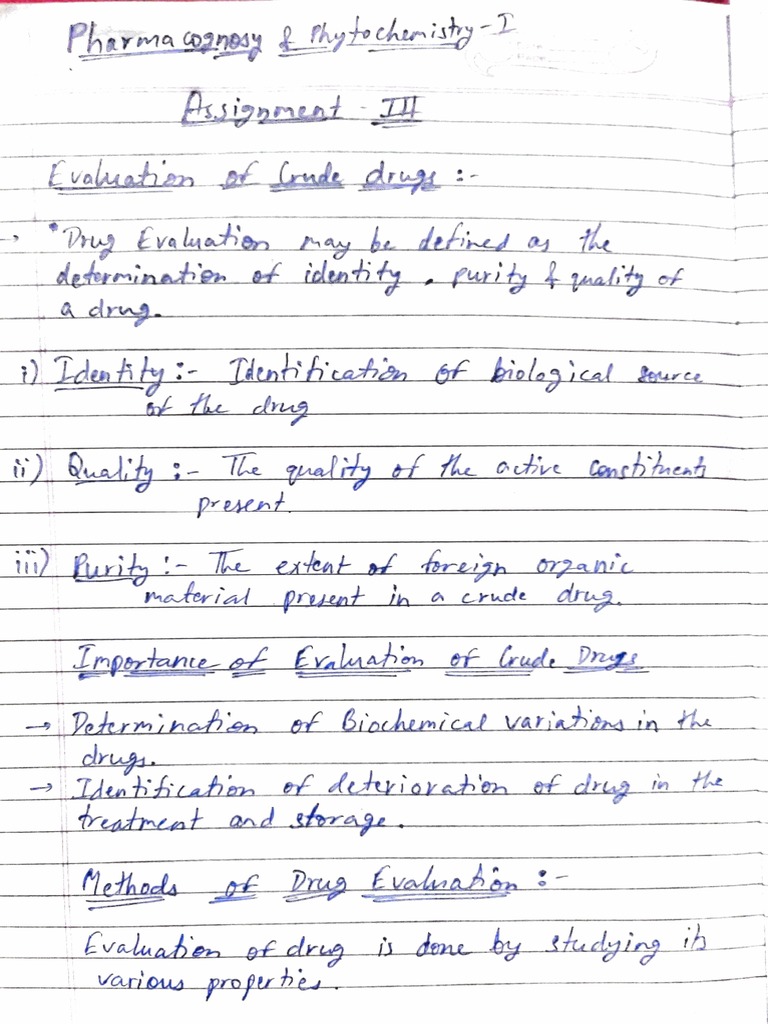 Pharmacognosy & Phytochemistry-I
Assignment - III
Evaluation of Crude drugs :-
→ "Drug Evaluation may be defined as the
determination of identity, purity & quality of
a drug.
i) Identity :- Identification of biological source
of the drug
ii) Quality :- The quality of the active constituents
present.
iii) Purity :- The extent of foreign organic
material present in a crude drug.
Importance of Evaluation of Crude Drugs
→ Determination of Biochemical variations in the
drugs.
→ Identification of deterioration of drug in the
treatment and storage.
Methods of Drug Evaluation :-
Evaluation of drug is done by studying its
various properties.